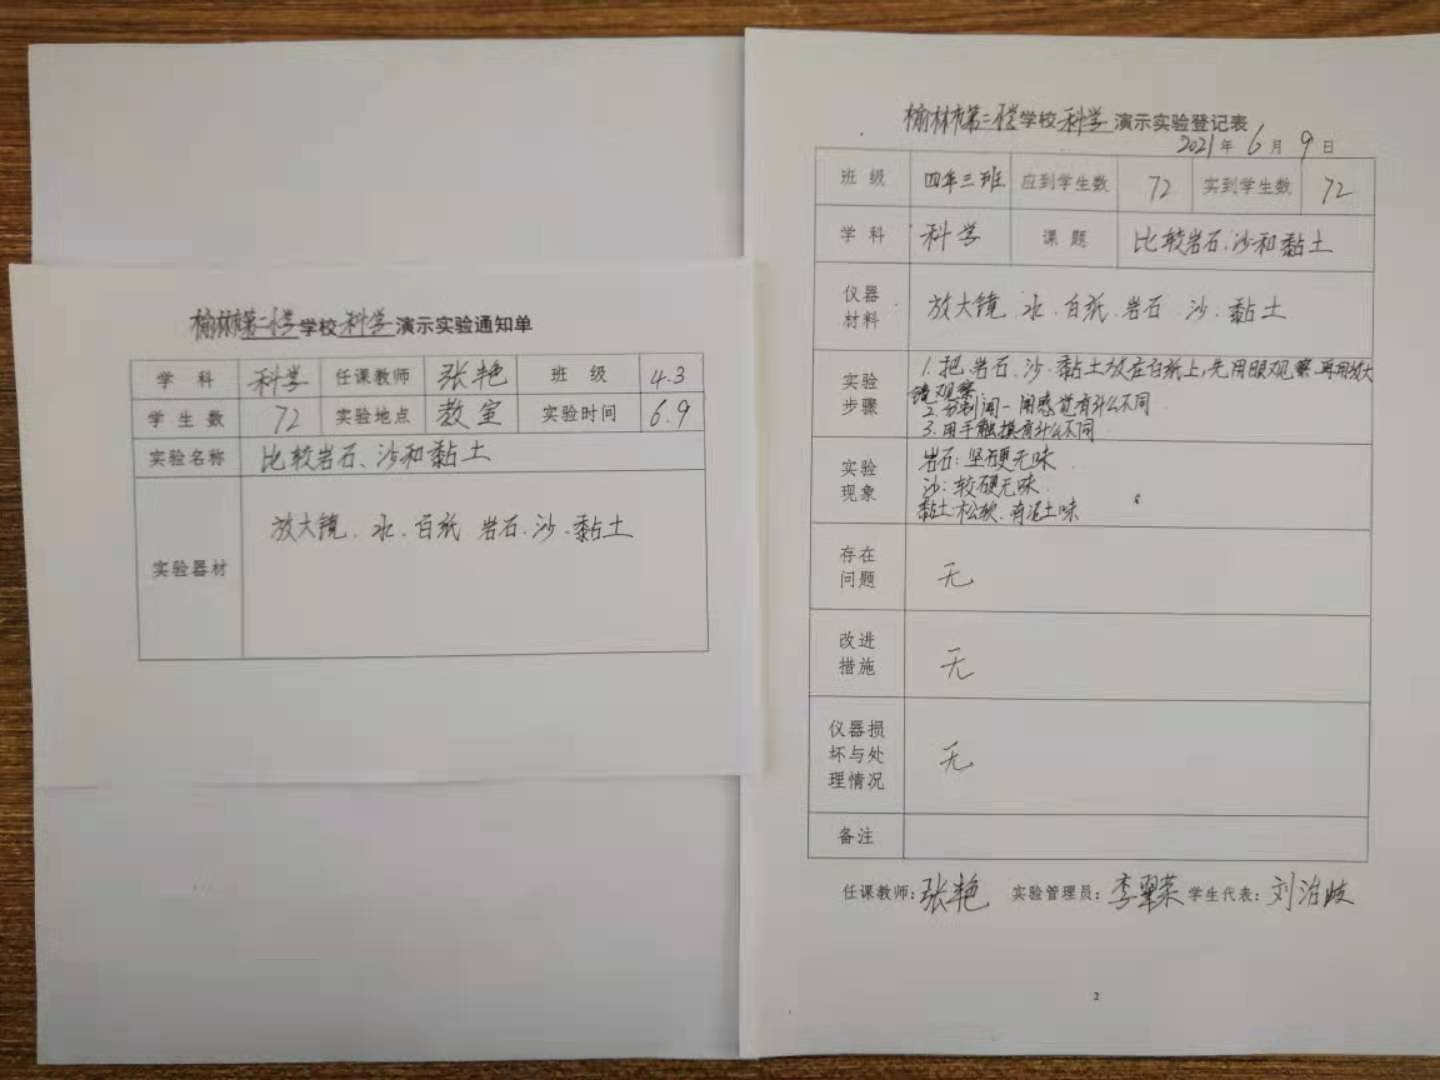 榆林市第二小学学校科学演示实验通知单
学 科 科学 任课教师 张艳 班 级 4.3
学生数 72 实验地点 教室 实验时间 6.9
实验名称 比较岩石、沙和黏土
实验器材 放大镜、水、白纸 岩石、沙、黏土
榆林市第二小学学校科学演示实验登记表
2021年6月9日
班 级 四年三班 应到学生数 72 实到学生数 72
学 科 科学 课 题 比较岩石、沙和黏土
仪器材料 放大镜 水、白纸、岩石 沙、黏土
实验步骤 1.把岩石、沙、黏土放在白纸上,先用眼观察,再用放大
镜观察
2.分别闻一闻感觉有什么不同
3.用手触摸有什么不同
实验现象 岩石:坚硬无味
沙:较硬无味
黏土:松软、有泥土味
存在问题 无
改进措施 无
仪器损坏与处理情况 无
备注
任课教师:张艳 实验管理员:李翠荣 学生代表:刘治歧
2